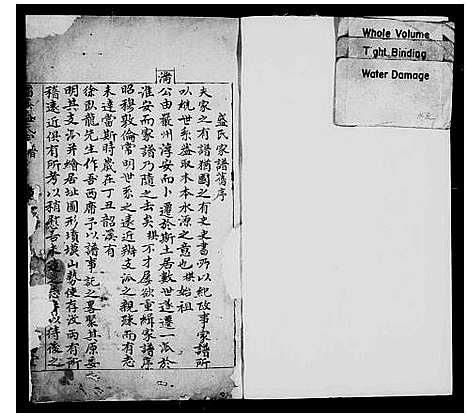 盛氏家譜舊序
夫家之有譜猶國之有史史書所以紀政事家譜所
以統世系盛取木本水源之意也 始祖
公由嚴州淳安而卜遷於斯土居數世遂遷一派於
淮安而家譜乃隨之去矣 不才屢欲重緝家譜序
昭穆敦倫常明世系之遠近辦支派之親疎而有志
未逮當斯時歲在丁丑韶有
徐臥龍先生作吾西席予以譜事託之畧聚其原委
明其支派并繪居址圖形墳塋山勢使存歿兩有所
稽遠近俱有所考以稍慰吾 以待後之
Whole Volume
Tight Binding
Water Damage